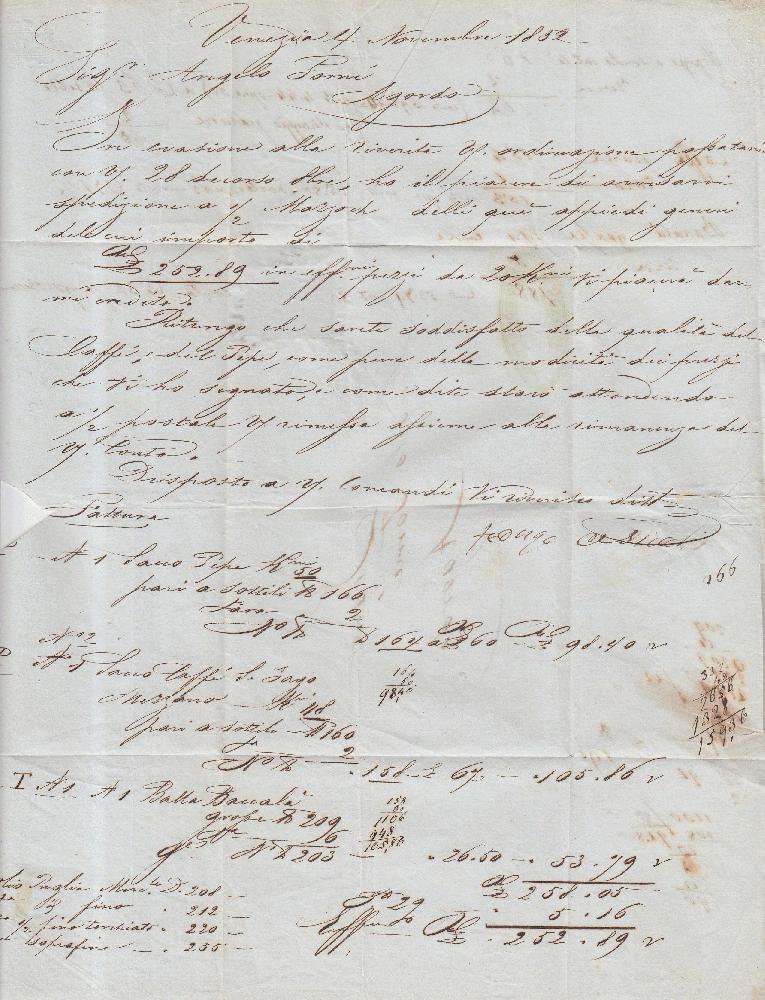 Venezia 4 Novembre 1852
Sigr. Angelo Tomi
Agordo
In evasione alla riverita V. ordinazione passatami
con V. 28 decorso 8bre, ho il piacere di avvisarvi
spedizione a 1/2 Mazzoch delli quì appiedi generi
del cui importo di
252.89 in effvi pezzi da 20 Kni vi piacerà dar
mi credito.
Ritengo che sarete soddisfatto della qualità del
Caffè, e del Pepe, come pure della modicità dei prezzi
che vi ho segnato, e come dite starò attendendo
a 1/2 postale V. rimessa assieme alla rimanenza del
V. Conto.
Disposto a V. Comandi vi riverisco distte
Fattura
166
N 1 Sacco Pepe 50
pari a sottili 166
Tara 2
No 164 a 60 98.40
No 2
N 1 Sacco Caffè S. Jago
Mezzano 48
pari a sottili 160
2
No 158 67 105.86
164
60
9840
158
67
1106
948
10586
T N 1 N 1 Balla Baccalà
grosse 209
6
No 203 26.50 53.79
258.05
29 5.16
Effvi 252.89
Olio Puglia D. 208
fino 212
1/2 fino torchiato 220
soprafino 235